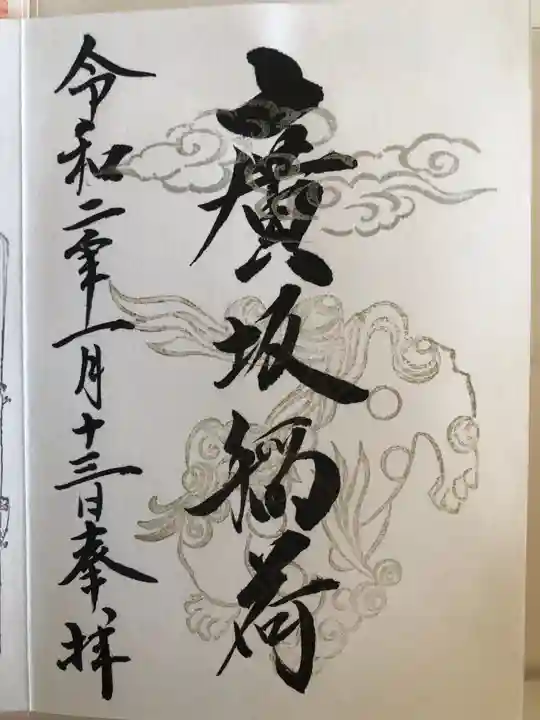 廣坂稲荷
令和二年一月十三日奉拝